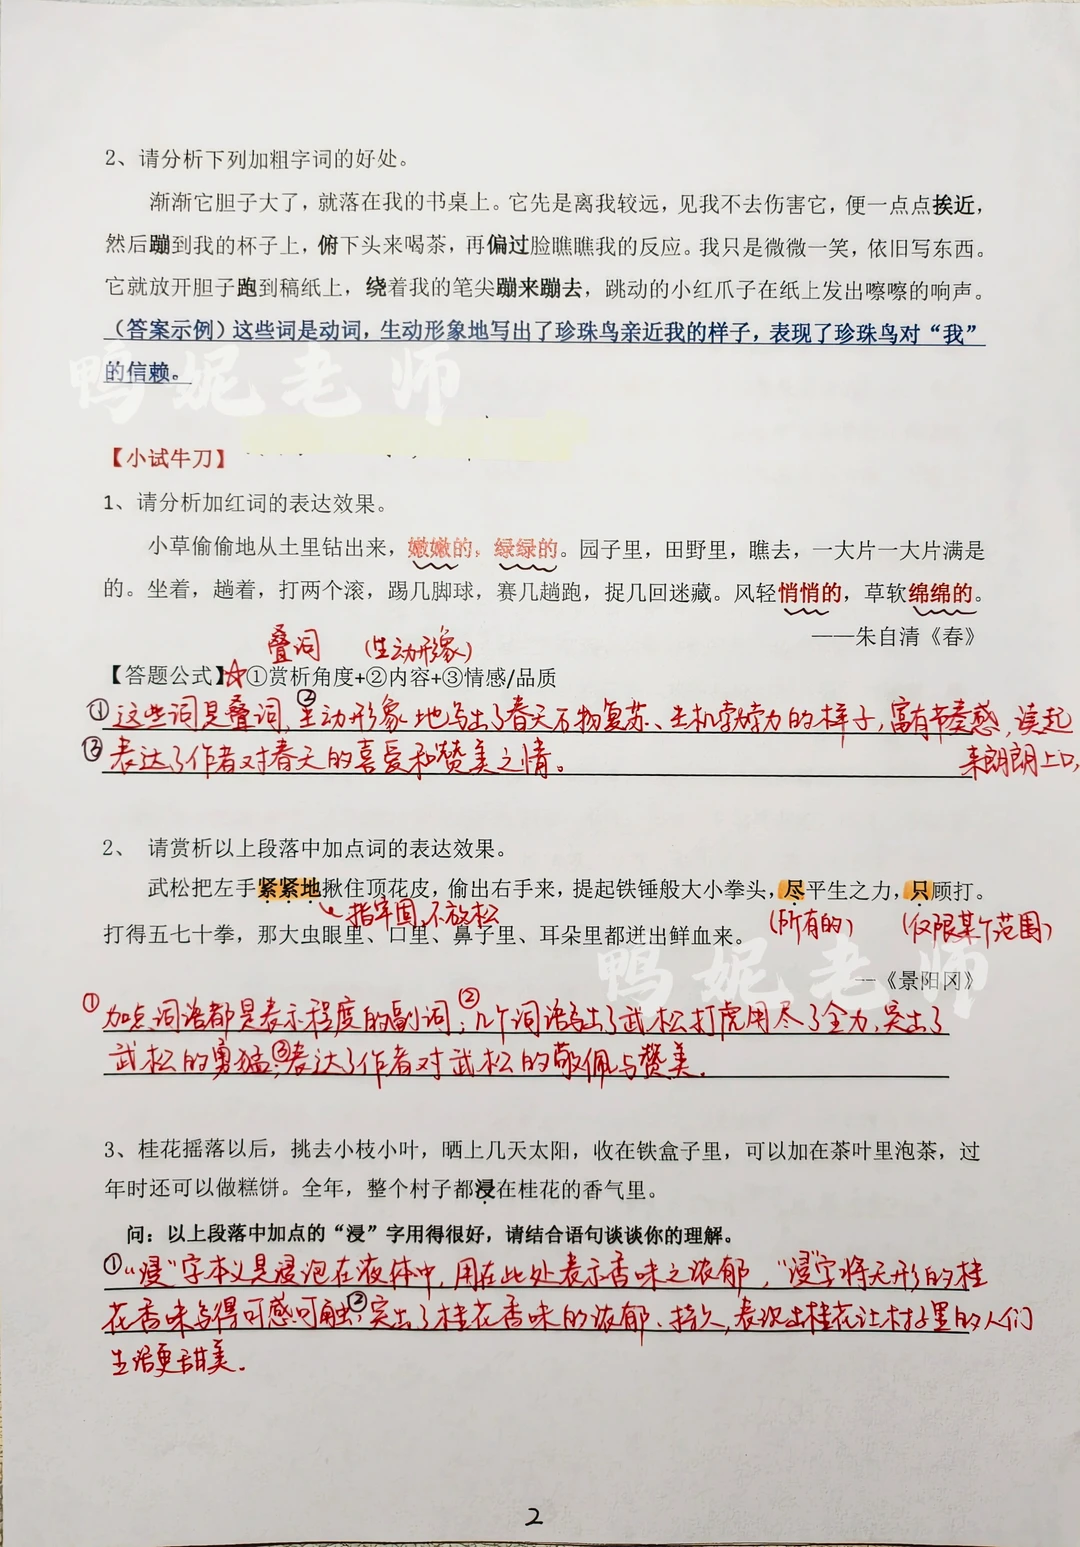 2、请分析下列加粗字词的好处。
渐渐它胆子大了，就落在我的书桌上。它先是离我较远，见我不去伤害它，便一点点挨近，
然后蹦到我的杯子上，俯下头来喝茶，再偏过脸瞧瞧我的反应。我只是微微一笑，依旧写东西。
它就放开胆子跑到稿纸上，绕着我的笔尖蹦来蹦去，跳动的小红爪子在纸上发出嚓嚓的响声。
（答案示例）这些词是动词，生动形象地写出了珍珠鸟亲近我的样子，表现了珍珠鸟对“我”
的信赖。
鸭妮老师
【小试牛刀】
1、请分析加红词的表达效果。
小草偷偷地从土里钻出来，嫩嫩的，绿绿的。园子里，田野里，瞧去，一大片一大片满是
的。坐着，趟着，打两个滚，踢几脚球，赛几趟跑，捉几回迷藏。风轻悄悄的，草软绵绵的。
——朱自清《春》
叠词 （生动形象）
【答题公式】☆①赏析角度+②内容+③情感/品质
①这些词是叠词，②生动形象地写出了春天万物复苏、生机勃勃的样子，富有节奏感，读起
来朗朗上口，
③表达了作者对春天的喜爱和赞美之情。
2、 请赏析以上段落中加点词的表达效果。
武松把左手紧紧地揪住顶花皮，偷出右手来，提起铁锤般大小拳头，尽平生之力，只顾打。
指牢固，不放松 （所有的） （仅限某个范围）
打得五七十拳，那大虫眼里、口里、鼻子里、耳朵里都迸出鲜血来。
鸭妮老师
--《景阳冈》
①加点词语都是表示程度的副词；②几个词语写出了武松打虎用尽了全力，突出了
武松的勇猛；③表达了作者对武松的敬佩与赞美.
3、桂花摇落以后，挑去小枝小叶，晒上几天太阳，收在铁盒子里，可以加在茶叶里泡茶，过
年时还可以做糕饼。全年，整个村子都浸在桂花的香气里。
问：以上段落中加点的“浸”字用得很好，请结合语句谈谈你的理解。
①“浸”字本义是浸泡在液体中，用在此处表示香味之浓郁，“浸”字将无形的桂
花香味写得可感可触；②突出了桂花香味的浓郁、持久，表现出桂花让村子里的人们
生活更甜美.
2